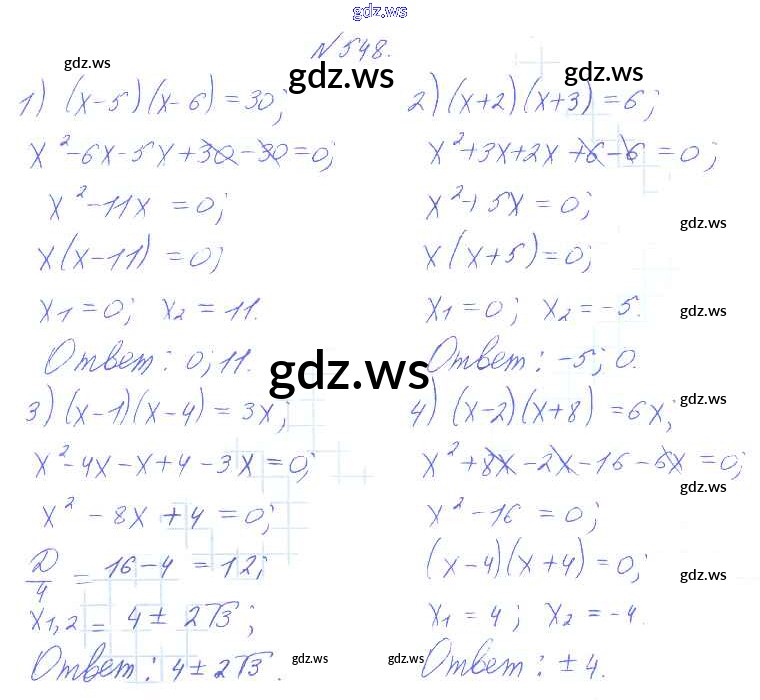 gdz.ws
№ 548.
gdz.ws
gdz.ws
gdz.ws
1) (x-5)(x-6) = 30;
x²-6x-5x+30-30=0;
x²-11x = 0;
x(x-11) = 0;
x₁=0; x₂ = 11.
Ответ: 0; 11.
2) (x+2)(x+3) = 6;
x²+3x+2x+6-6 = 0;
x²+5x = 0;
gdz.ws
x(x+5) = 0;
x₁=0; x₂ = -5.
gdz.ws
Ответ: -5; 0.
gdz.ws
3) (x-1)(x-4) = 3x;
x²-4x-x+4-3x=0;
x²-8x+4=0;
D/4 = 16-4 = 12;
x₁,₂ = 4±2√3;
Ответ: 4±2√3.
gdz.ws
gdz.ws
4) (x-2)(x+8) = 6x;
x²+8x-2x-16-6x=0;
gdz.ws
x²-16 = 0;
(x-4)(x+4) = 0;
gdz.ws
x₁=4; x₂=-4.
Ответ: ±4.
gdz.ws